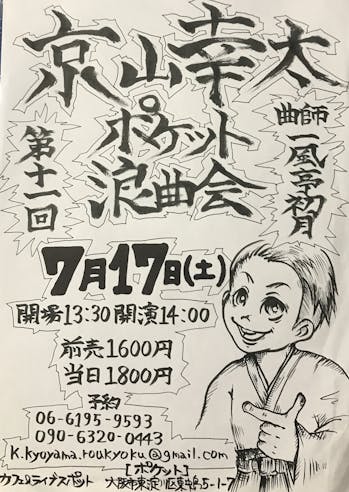 京山幸太
ポケット
浪曲会
第十一回
曲師 一風亭初月
7月17日(土)
開場13:30 開演14:00
前売1600円
当日1800円
予約
06-6195-9593
090-6320-0443
k.kyoyama.roukyoku@gmail.com
[ポケット]
カフェ&ライブスポット 大阪市東淀川区東中島5-1-7